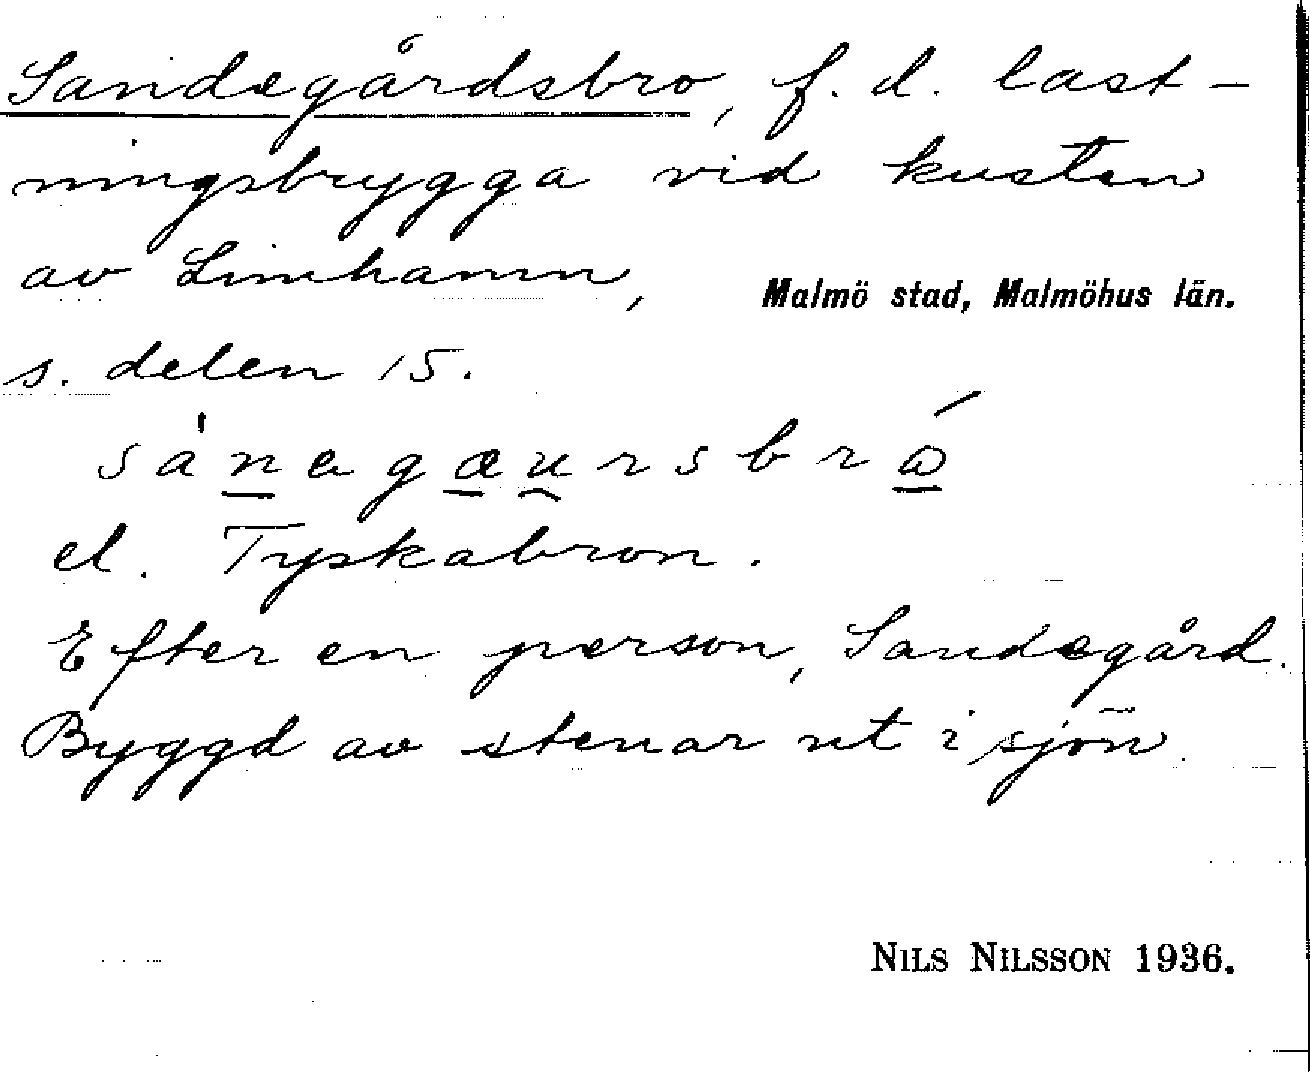 Sandegårdsbro, f. d. last-
ningsbrygga vid kusten
av Limhamn,
Malmö stad, Malmöhus län.
s. delen 15.
el. Tyskabron.
Efter en person, Sandegård.
Byggd av stenar ut i sjön.
NILS NILSSON 1936.